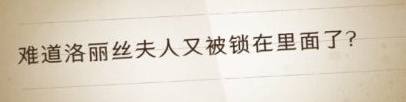 难道洛丽丝夫人又被锁在里面了?